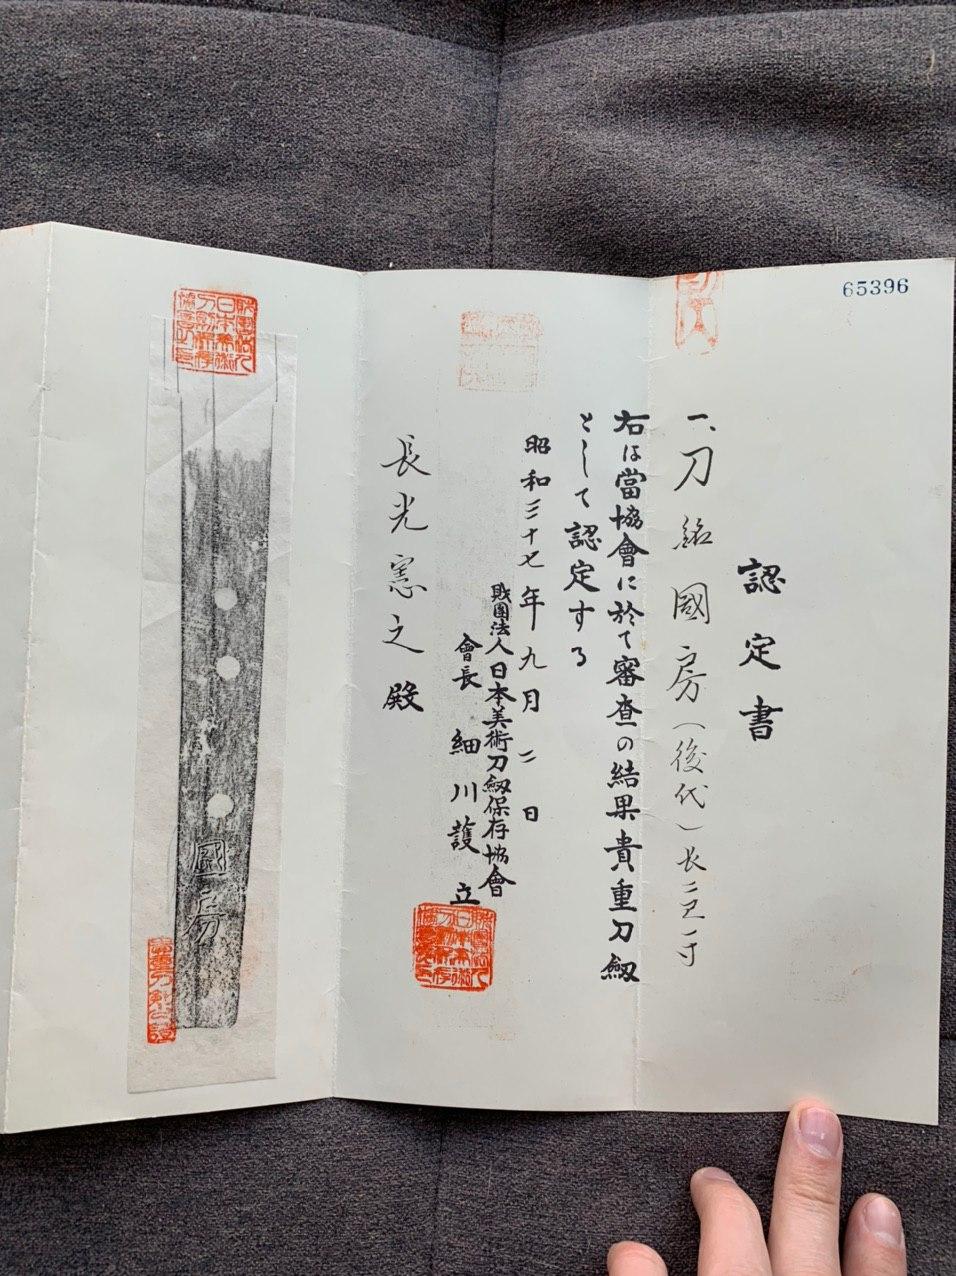 65396
認定書
一、刀 銘 國房(後代)長二尺一寸
右は當協會に於て審査の結果貴重刀劔
として認定する
昭和三十七年九月二日
財團法人日本美術刀劔保存協會
會長 細川護立
長光憲之殿
國房